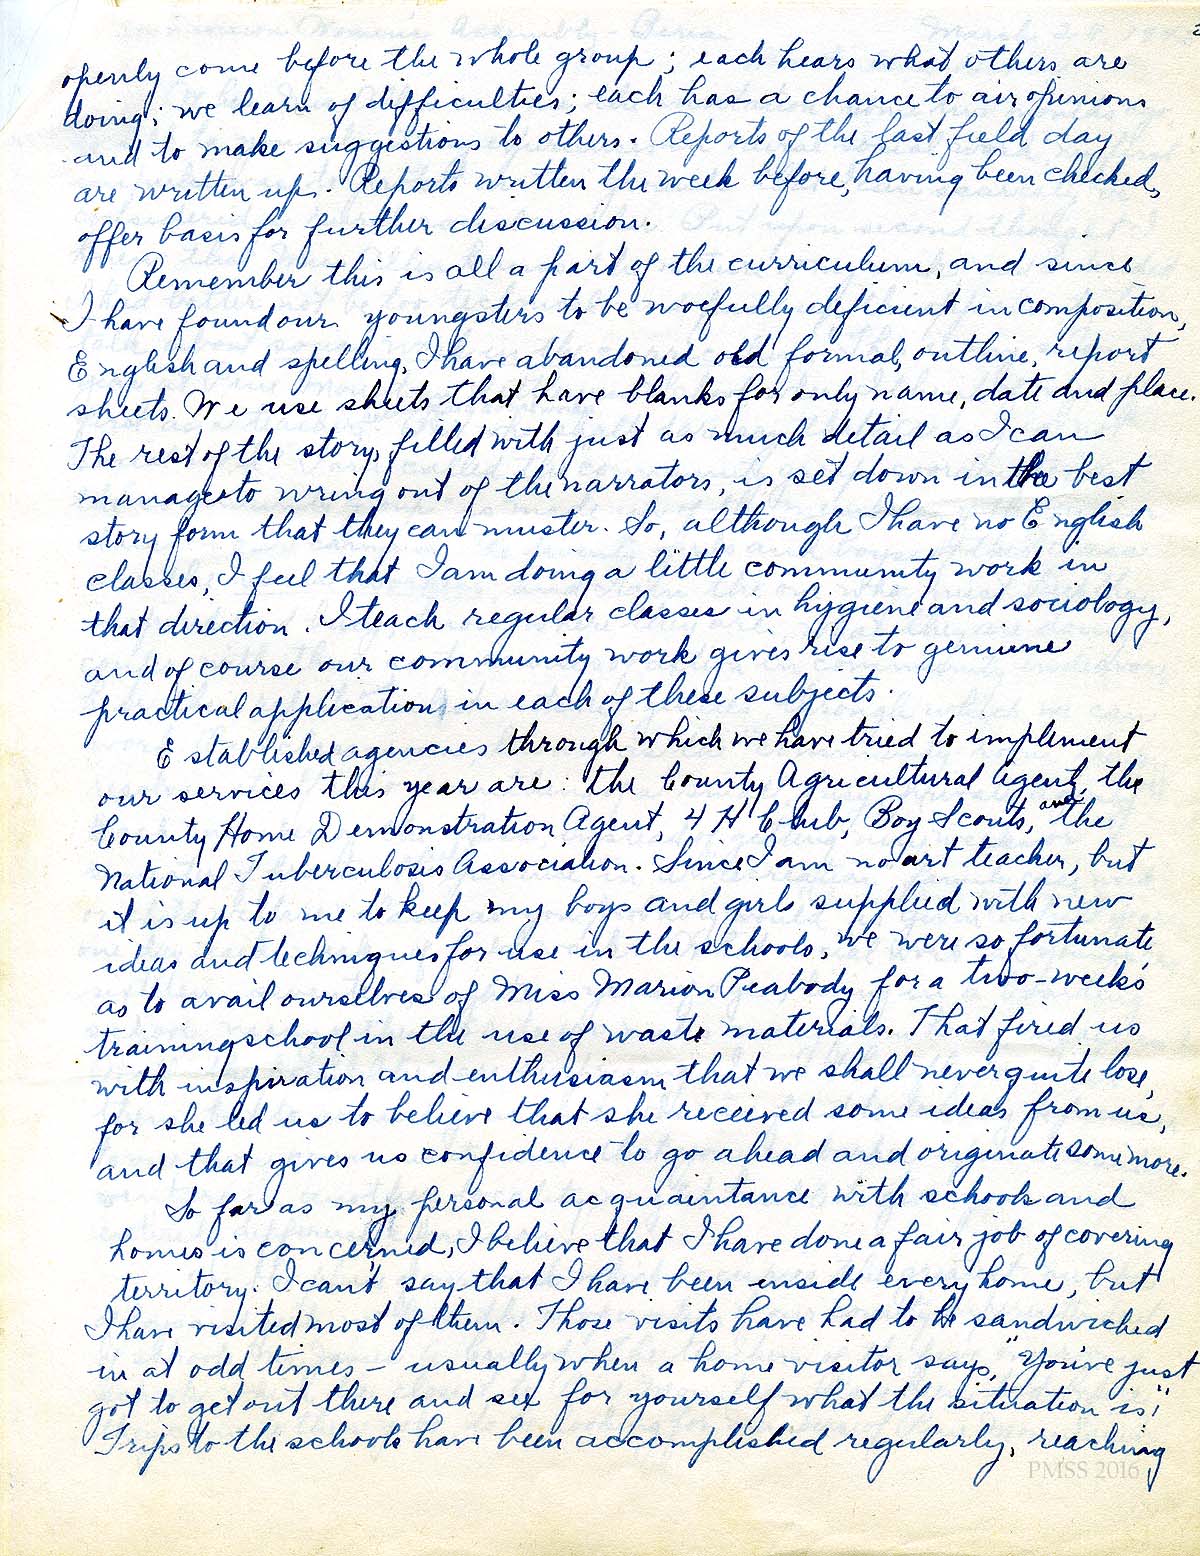 2
openly come before the whole group; each hears what others are
doing; we learn of difficulties; each has a chance to air opinions
and to make suggestions to others. Reports of the last field day
are written up. Reports written the week before, having been checked,
offer basis for further discussion.
Remember this is all a part of the curriculum, and since
I have found our youngsters to be woefully deficient in composition,
English and spelling, I have abandoned old formal, outline, report
sheets. We use sheets that have blanks for only name, date and place.
The rest of the story, filled with just as much detail as I can
manage to wring out of the narrators, is set down in the best
story form that they can muster. So, although I have no English
classes, I feel that I am doing a little community work in
that direction. I teach regular classes in hygiene and sociology,
and of course our community work gives rise to genuine
practical application in each of these subjects.
Established agencies through which we have tried to implement
our services this year are: the County Agricultural Agent, the
County Home Demonstration Agent, 4 H Club, Boy Scouts, and the
National Tuberculosis Association. Since I am no art teacher, but
it is up to me to keep my boys and girls supplied with new
ideas and techniques for use in the schools, we were so fortunate
as to avail ourselves of Miss Marion Peabody for a two-weeks'
training school in the use of waste materials. That fired us
with inspiration and enthusiasm that we shall never quite lose,
for she led us to believe that she received some ideas from us,
and that gives us confidence to go ahead and originate some more.
So far as my personal acquaintance with schools and
homes is concerned, I believe that I have done a fair job of covering
territory. I can't say that I have been inside every home, but
I have visited most of them. Those visits have had to be sandwiched
in at odd times – usually when a home visitor says, "You've just
got to get out there and see for yourself what the situation is!"
Trips to the schools have been accomplished regularly, reaching
PMSS 2016